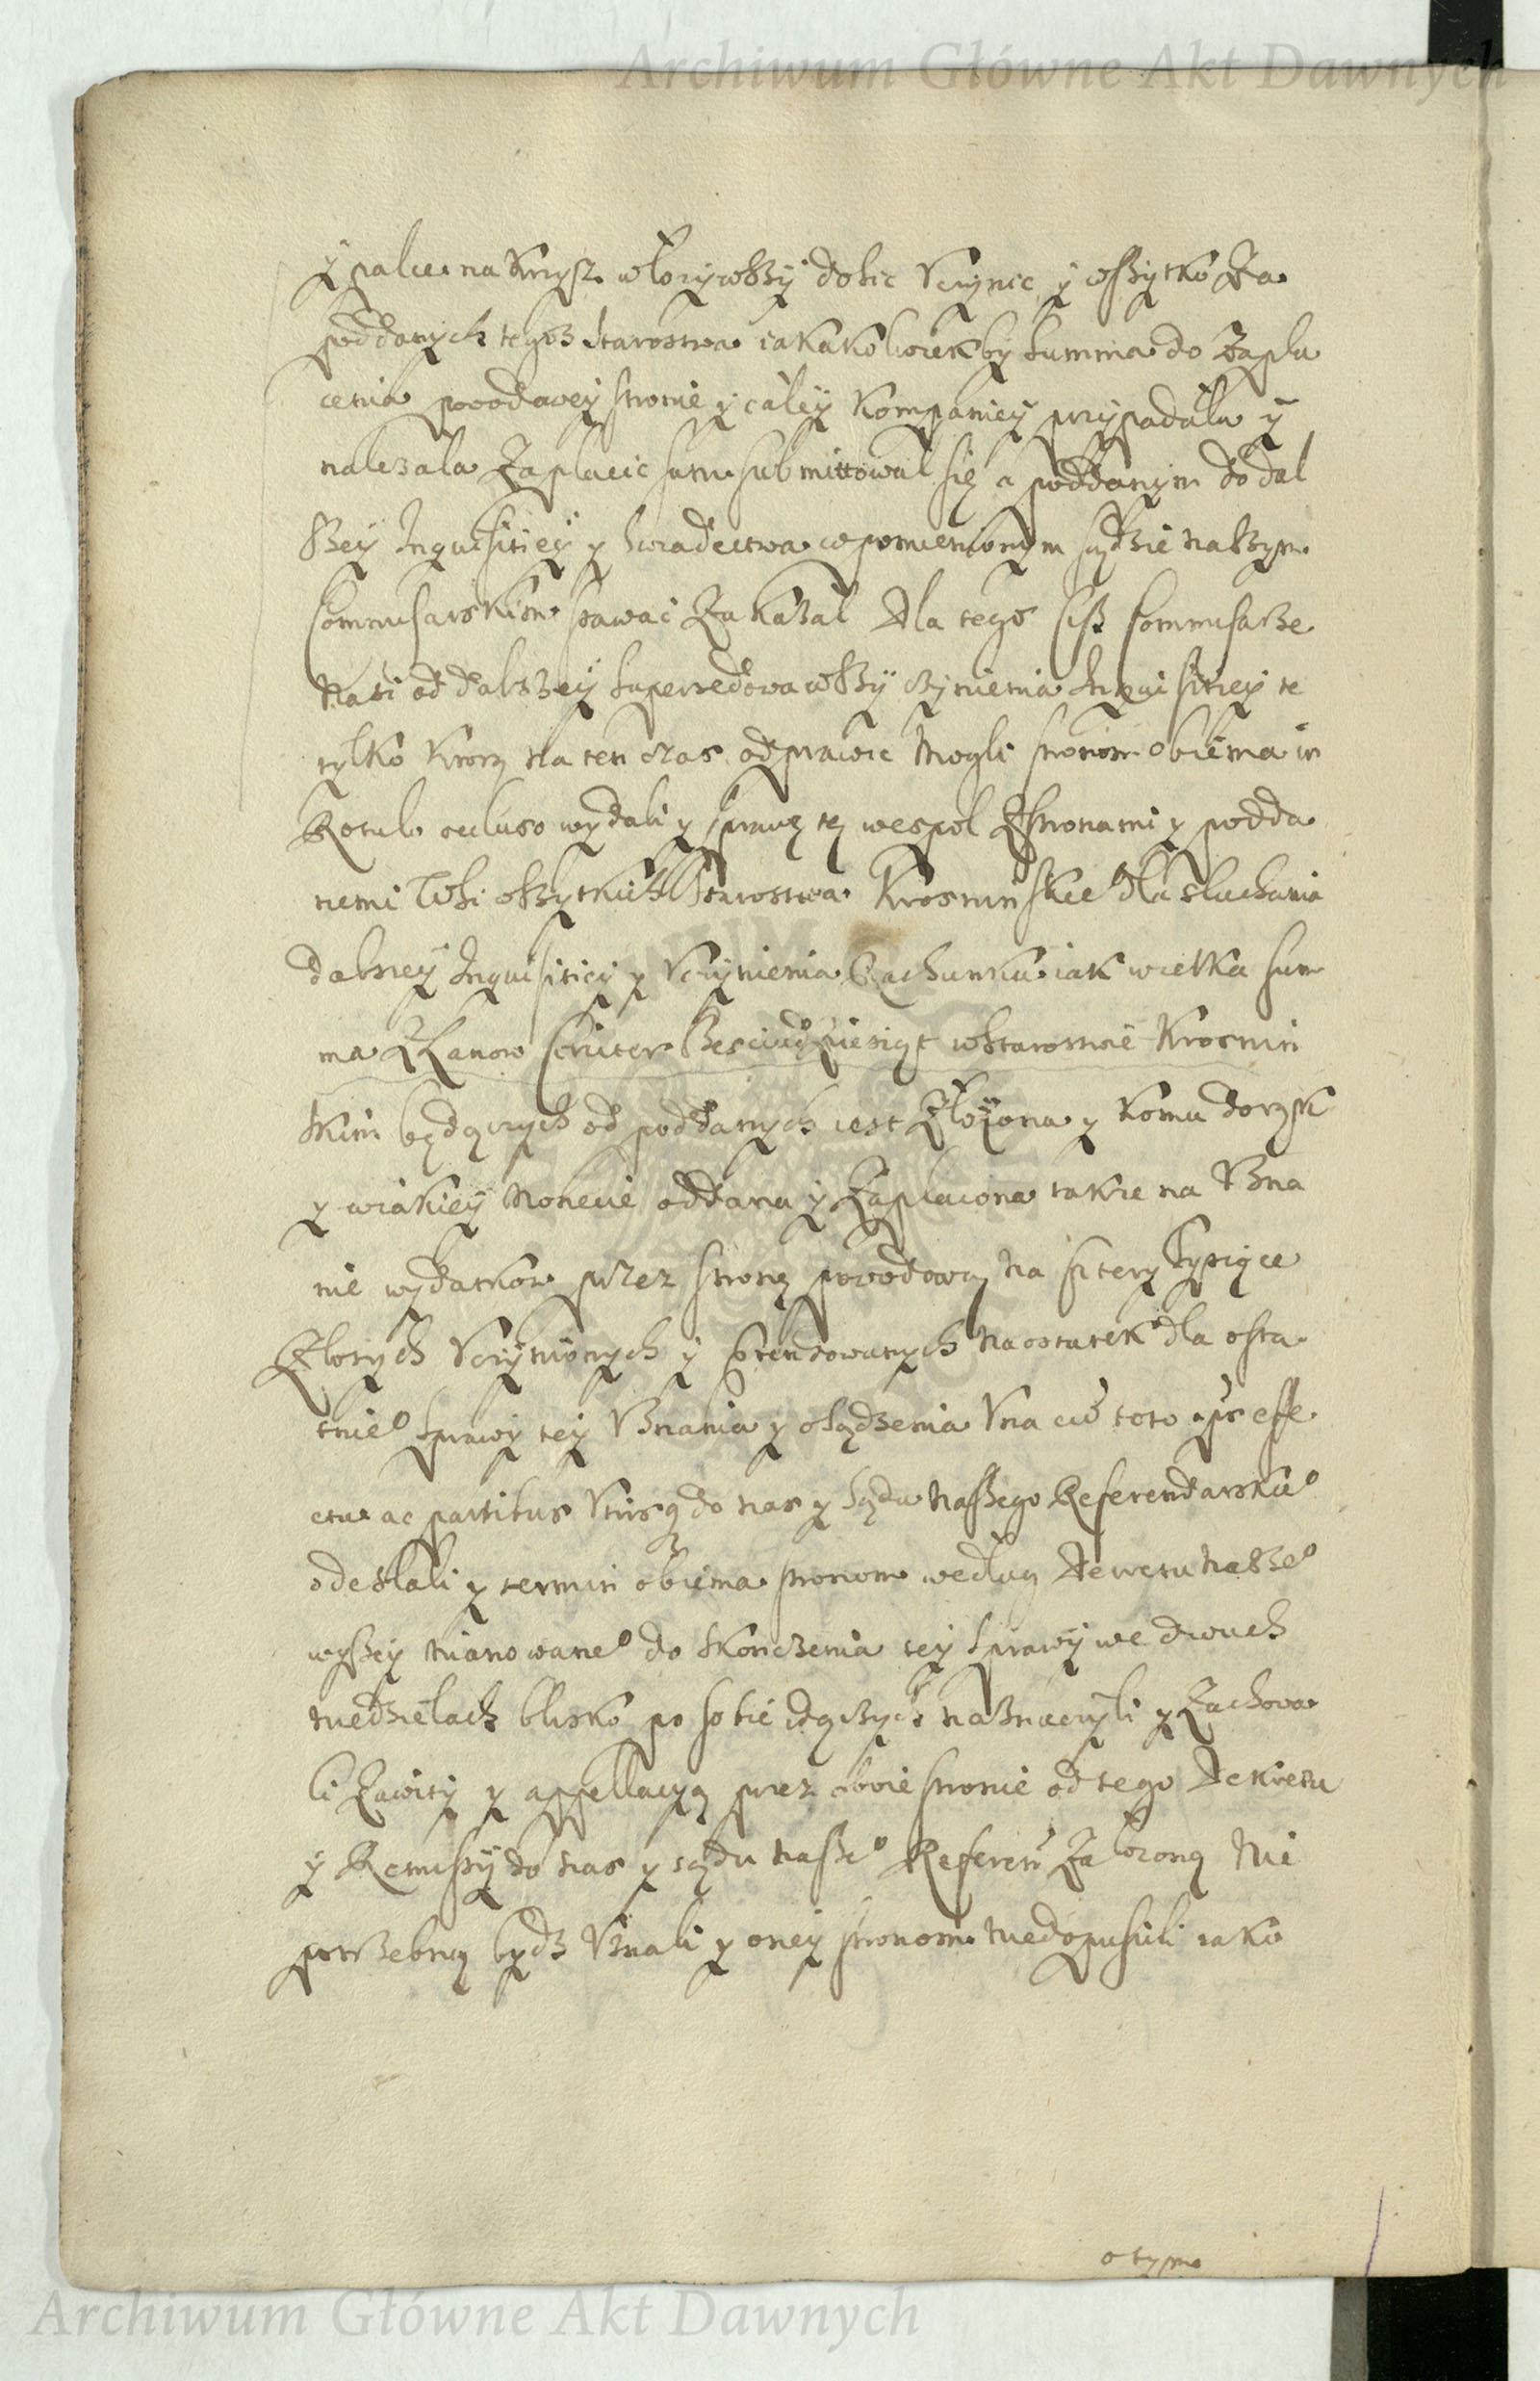 Archiwum Główne Akt Dawnych
y palce na Krzysz włozywszy dosic Vczynic y wszytko Za
poddanych tegoz Starostwa iakakolwiekby Summa do Zapła
cenia powodowey stronie y całey Kompaniey przypadała y
nalezała Zapłacic sam submittował się a poddanym do dal
szey Inquisitiey y swiadectwa wpomienionym sądzie naszym
Commisarskim stawać Zakazał Dla tego ciż Commisarze
Nasi od dalszey supersedowawszy czynienia Inquisitiey te
tylko Ktorą na ten czas odprawic Mogli stronom obiema in
Rotulo occluso wydali y sprawę tę wespoł Zstronami y podda
nemi wsi wszytkich Starostwa Krosninskieo dla słuchania
dalszey Inquisitiey y Vczynienia Rachunku iak wielka Sum
ma Złanow Szesciudziesiąt wStarostwie Krosnin
skim będących od poddanych iest Złozona y Komu
y wiakiey Monecie oddana y Zapłacona takze na Vzna
nie wydatkow przez stronę powodową Na cztery Tysiące
Złotych Vczynionych y Na ostatek dla osta
tnieo Sprawy tey Vznania y osądzenia Vna cum toto effe
ctu ac partibus do nas y Sądu Naszego Referendarskieo
odesłali y termin obiema stronom według Decretu Naszeo
wyszey mianowaneo do skonczenia tey Sprawy we dwuch
niedzielach blisko po sobie idących naznaczyli y Zachowa
li Zawity y appellacyą przez obie stronie od tego Dekretu
y Remissy do nas y sądu naszeo Referen Załozoną Nie
potrzebną bydz Vznali y oney stronom niedopuscili iako
o tym
Archiwum Główne Akt Dawnych